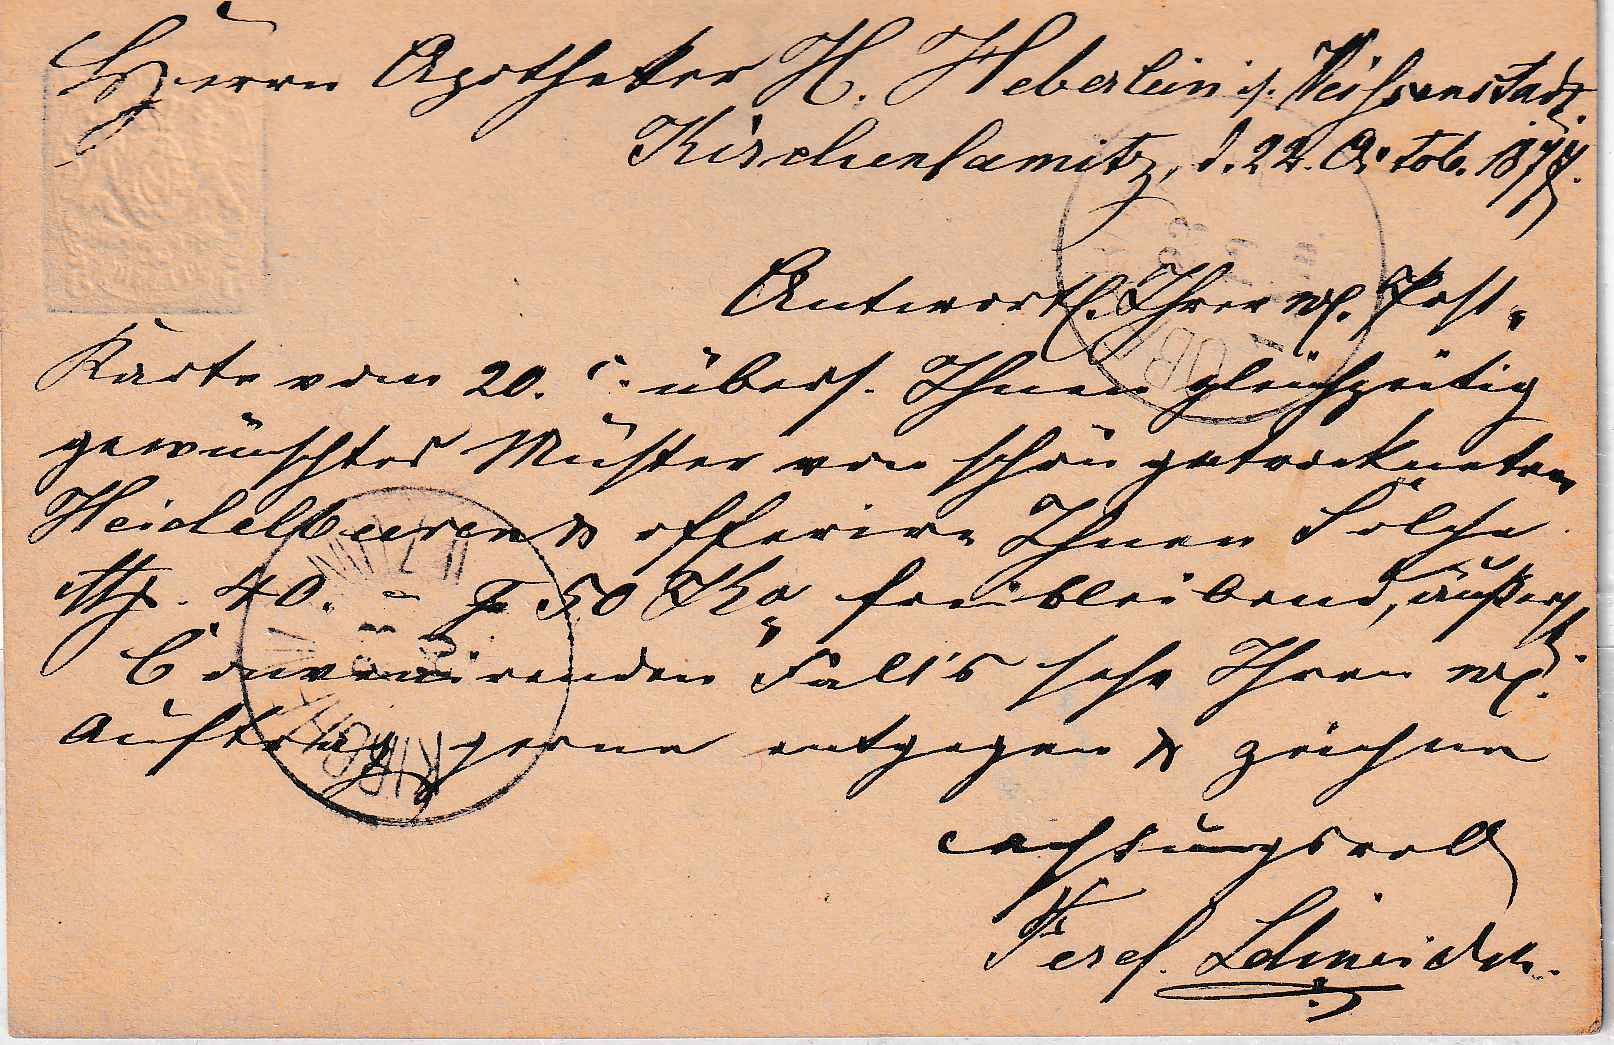 Herrn Apotheker H. Heberlein i/. Weißenstadt.
Kirchenlamitz, d. 22. Octob. 1877.
Antwortl. Ihrer w. Post-
Karte vom 20. c. übers. Ihnen gleichzeitig
gewünschtes Muster von schön getrockneten
Heidelbeeren & offerire Ihnen Solche
Mk. 40. – p 50 Ko freibleibend,
Convenirenden Fall's sehe Ihrem w.
Auftrag gerne entgegen & zeichne
achtungsvoll
Ferd. Schneider.
KIRCHENLAMITZ